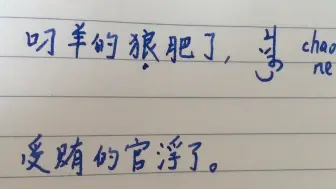 叼羊的狼肥了, chao
ne
受贿的官浮了。